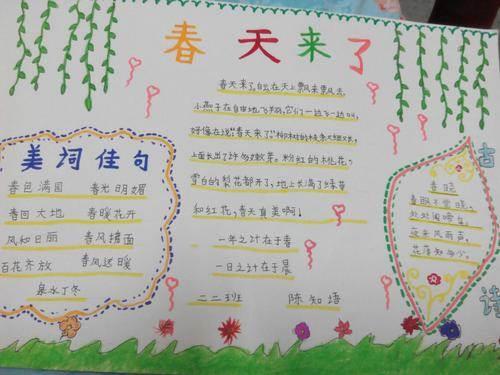 春天来了
春天来了,白云在天上飘来飘去,
小燕子在自由地飞翔,它们一边飞一边叫,
好像在说“春天来了”柳树的枝条又细又长,
上面长出了许多嫩芽。粉红的桃花,
雪白的梨花都开了,地上长满了绿草
和红花,春天真美啊!
一年之计在于春
一日之计在于晨
二二班 陈知语
美词佳句
春色满园 春光明媚
春回大地 春暖花开
风和日丽 春风拂面
百花齐放 春风送暖
泉水丁冬
古诗
春晓
春眠不觉晓,
处处闻啼鸟。
夜来风雨声,
花落知多少。